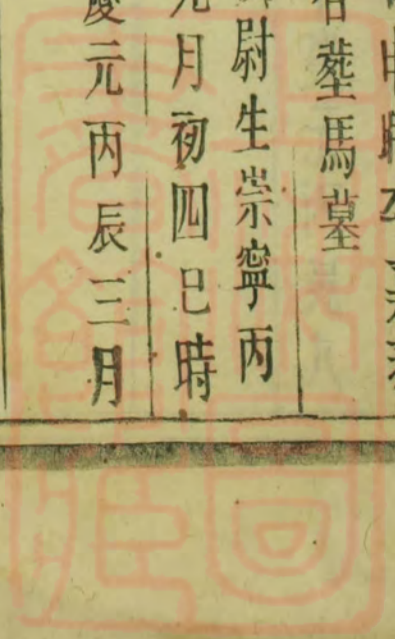 申時
塟馬墓
尉生崇寧丙
月初四巳時
慶元丙辰三月